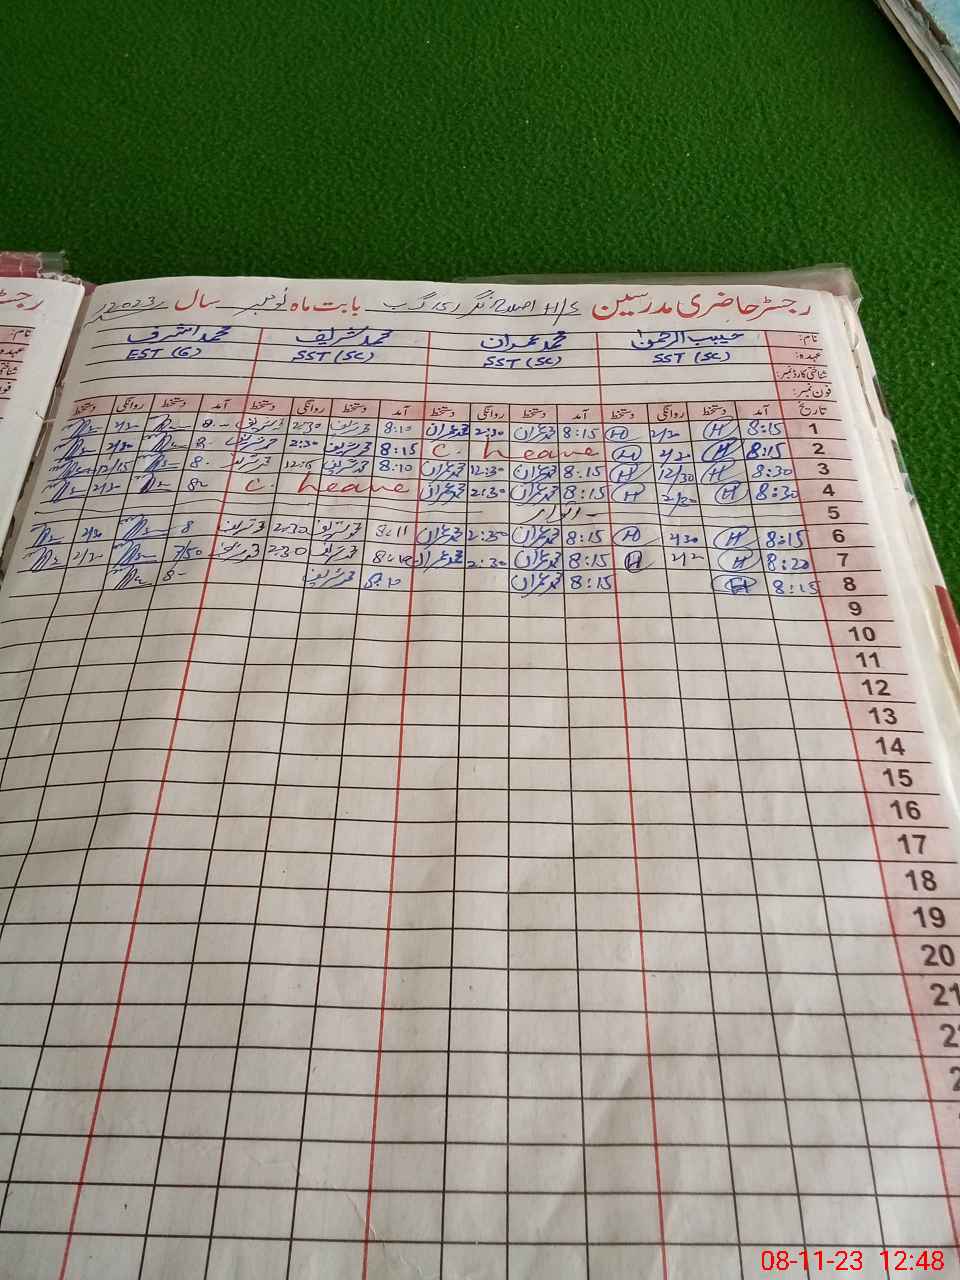 رجسٹر حاضری مدرسین H/S 151 گ ب بابت ماہ نومبر سال 2023ء
نام: حبیب الرحمٰن محمد عمران محمد شریف محمد اشرف
عہدہ: SST (SC) SST (SC) SST (SC) EST (G)
شناختی کارڈ نمبر:
فون نمبر:
تاریخ آمد دستخط روانگی دستخط آمد دستخط روانگی دستخط آمد دستخط روانگی دستخط آمد دستخط روانگی دستخط
1 8:15 H 2/30 H 8:15 محمد عمران 2:30 محمد عمران 8:10 محمد شریف 2:30 محمد شریف 8- 2/30
2 8:15 H 2/30 H C. Leave 8:15 محمد شریف 2:30 محمد شریف 8- 2/30
3 8:30 H 12/30 H 8:15 محمد عمران 12:30 محمد عمران 8:10 محمد شریف 12:15 محمد شریف 8- 12/15
4 8:30 H 2/30 H 8:15 محمد عمران 2:30 محمد عمران C. Leave 8- 2/30
5 اتوار
6 8:15 H 2/30 H 8:15 محمد عمران 2:30 محمد عمران 8:11 محمد شریف 2:30 محمد شریف 8 2/30
7 8:20 H H 8:15 محمد عمران 2:30 محمد عمران 8:10 محمد شریف 2:30 محمد شریف 7/50 2/30
8 8:15 H 8:15 محمد عمران 8:10 محمد شریف 8-
9
10
11
12
13
14
15
16
17
18
19
20
21
08-11-23 12:48